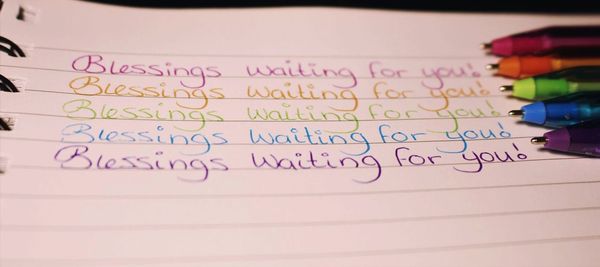 Blessings waiting for you!
Blessings waiting for you!
Blessings waiting for you!
Blessings waiting for you!
Blessings waiting for you!